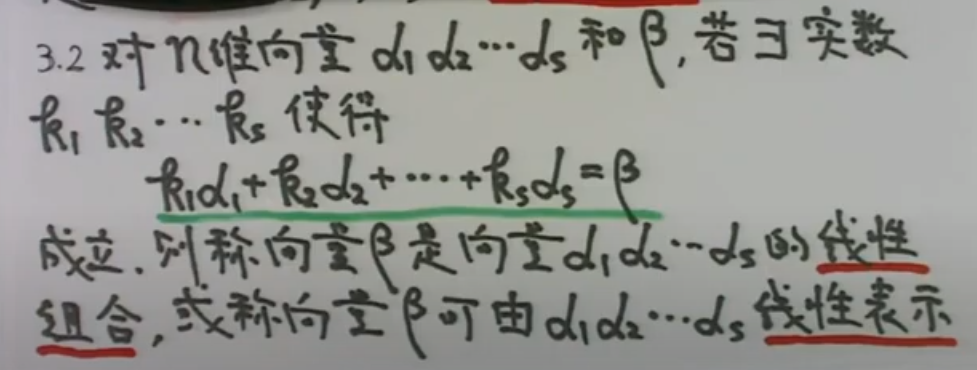 3.2 对n维向量 α₁ α₂ ··· αₛ 和 β, 若∃实数
k₁ k₂ ··· kₛ 使得
k₁α₁ + k₂α₂ + ···· + kₛαₛ = β
成立. 则称向量β是向量α₁ α₂ ··· αₛ的线性
组合, 或称向量β可由α₁α₂···αₛ线性表示